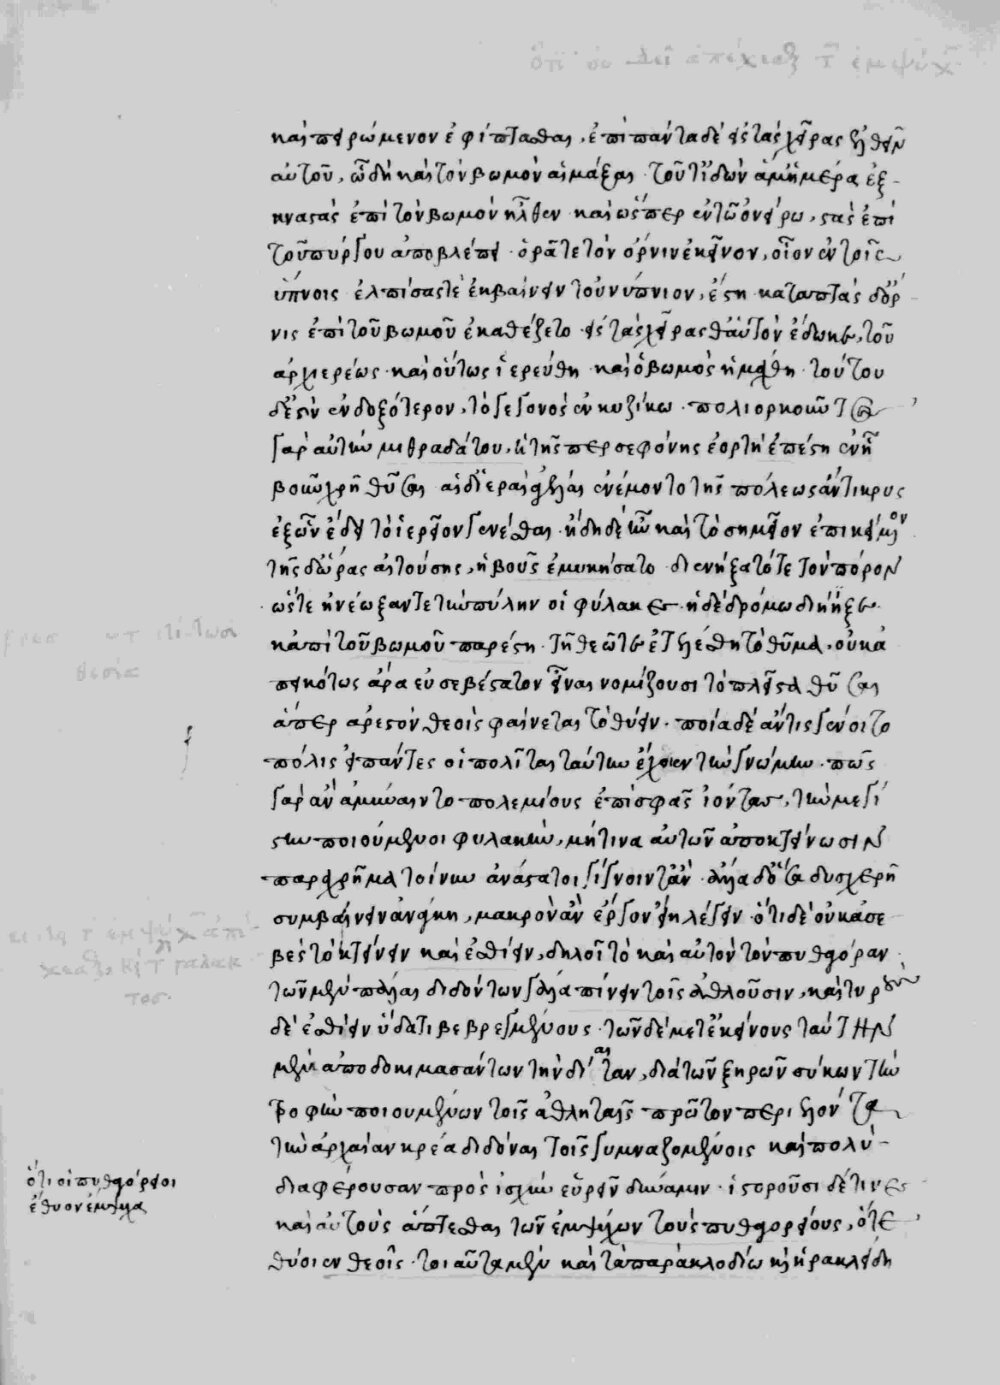 καὶ πτερώμενον ἐφίπτασθαι, ἐπὶ πάντα δὲ εἰς τὰς χεῖρας ἐλθεῖν
αὐτοῦ, ᾧ δὴ καὶ τὸν βωμὸν αἱμάξαι· τοῦτ' ἰδὼν ἅμ' ἡμέρα ἐξ-
αναστὰς ἐπὶ τὸν βωμὸν ἦλθεν· καὶ ὥσπερ ἐν τῷ ὀνείρῳ, στὰς ἐπὶ
τοῦ πύργου ἀποβλέπει· ὁρᾶτε τὸν ὄρνιν ἐκεῖνον, οἷον ἐν τοῖς
ὕπνοις ἐλπίσας τὲ ἐκβαίνειν τοὐνύπνιον, ἔστη· καταπτὰς δ' ὄρ-
νις ἐπὶ τοῦ βωμοῦ ἐκαθέζετο εἰς τὰς χεῖρας θ' αὑτὸν ἔδωκε, τοῦ
ἀρχιερέως· καὶ οὕτως ἱερεύθη· καὶ ὁ βωμὸς ἡμάχθη· τούτου
δ' ἐστὶν ἐνδοξότερον, τὸ γεγονὸς ἐν κυζίκῳ· πολιορκοῦντος
γὰρ αὐτὴν μιθραδάτου, ἡ τῆς περσεφόνης ἑορτὴ ἐπέστη ἐν ᾗ
βοῦν χρῆ θῦσαι αἱ δ' ἱεραὶ ἀγέλαι ἐνέμοντο τῆς πόλεως ἄντικρυς
ἐξ ὧν ἔδει τὸ ἱερεῖον γενέσθαι· ἤδη δ' ἦν καὶ τὸ σημεῖον ἐπικείμενον
τῆς δ' ὥρας αἰτούσης, ἡ βοῦς ἐμυκήσατο διενήξατό τε τὸν πόρον
ὥστε ἠνέῳξαν τε τὴν πύλην οἱ φύλακες· ἡ δὲ δρόμῳ διῇξε
κἀπὶ τοῦ βωμοῦ παρέστη· τῇ θεῷ τε ἐτελέσθη τὸ θῦμα· οὐκ ἀ
πεικότως ἄρα εὐσεβέστατον εἶναι νομίζουσι τὸ πλεῖστα θῦσαι
ἅπερ ἀρεστὸν θεοῖς φαίνεται τὸ θύειν· ποία δὲ ἄν τις γένοιτο
πόλις εἰ πάντες οἱ πολῖται ταύτην ἔχοιεν τὴν γνώμην· πῶς
γὰρ ἂν ἀμύναιντο πολεμίους ἐπὶ σφᾶς ἰόντας, τὴν μεγί
στην ποιούμενοι φυλακὴν, μήτινα αὐτῶν ἀποκτείνωσιν
παραχρῆμα τοίνυν ἀνάστατοι γίγνοιντ' ἂν· ἀλλὰ δ' ὅσα δυσχερῆ
συμβαίνειν ἀνάγκη, μακρὸν ἂν ἔργον εἴη λέγειν· ὅτι δὲ οὐκ ἀσε
βὲς τὸ κτείνειν καὶ ἐσθίειν, δηλοῖ τὸ καὶ αὐτὸν τὸν πυθαγόραν
τῶν μὲν πάλαι διδόντων γάλα πίνειν τοῖς ἀθλοῦσιν, καὶ τυροὺς
δὲ ἐσθίειν ὕδατι βεβρεγμένους· τῶν δὲ μετ' ἐκείνους ταύτην
μὲν ἀποδοκιμασάντων τὴν δίαιταν, διὰ τῶν ξηρῶν σύκων τὴν
τροφὴν ποιουμένων τοῖς ἀθληταῖς πρῶτον περιελόντα
τὴν ἀρχαίαν κρέα διδόναι τοῖς γυμναζομένοις καὶ πολὺ
διαφέρουσαν πρὸς ἰσχὺν εὑρεῖν δύναμιν· ἱστοροῦσι δέ τινες
καὶ αὐτοὺς ἅπτεσθαι τῶν ἐμψύχων τοὺς πυθαγορείους, ὅτε
θύοιεν θεοῖς· τοιαῦτα μὲν καὶ τὰ παρὰ κλοδίῳ καὶ ἡρακλείδη
ὅτι οἱ πυθαγόρειοι
ἔθυον ἔμψυχα